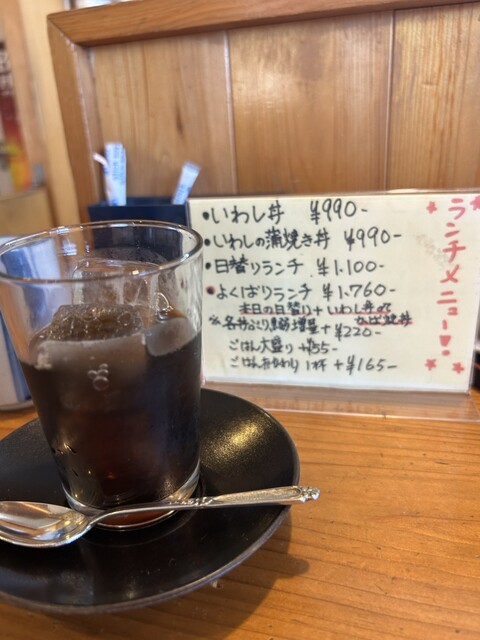 ランチメニュー
・いわし丼 ¥990-
・いわしの蒲焼き丼 ¥990-
・日替りランチ ¥1.100-
・よくばりランチ ¥1.760-
本日の日替り+いわし丼or
かば焼丼
増量+¥220-
ごはん大盛り+¥55-
ごはんおかわり 1杯+¥165-